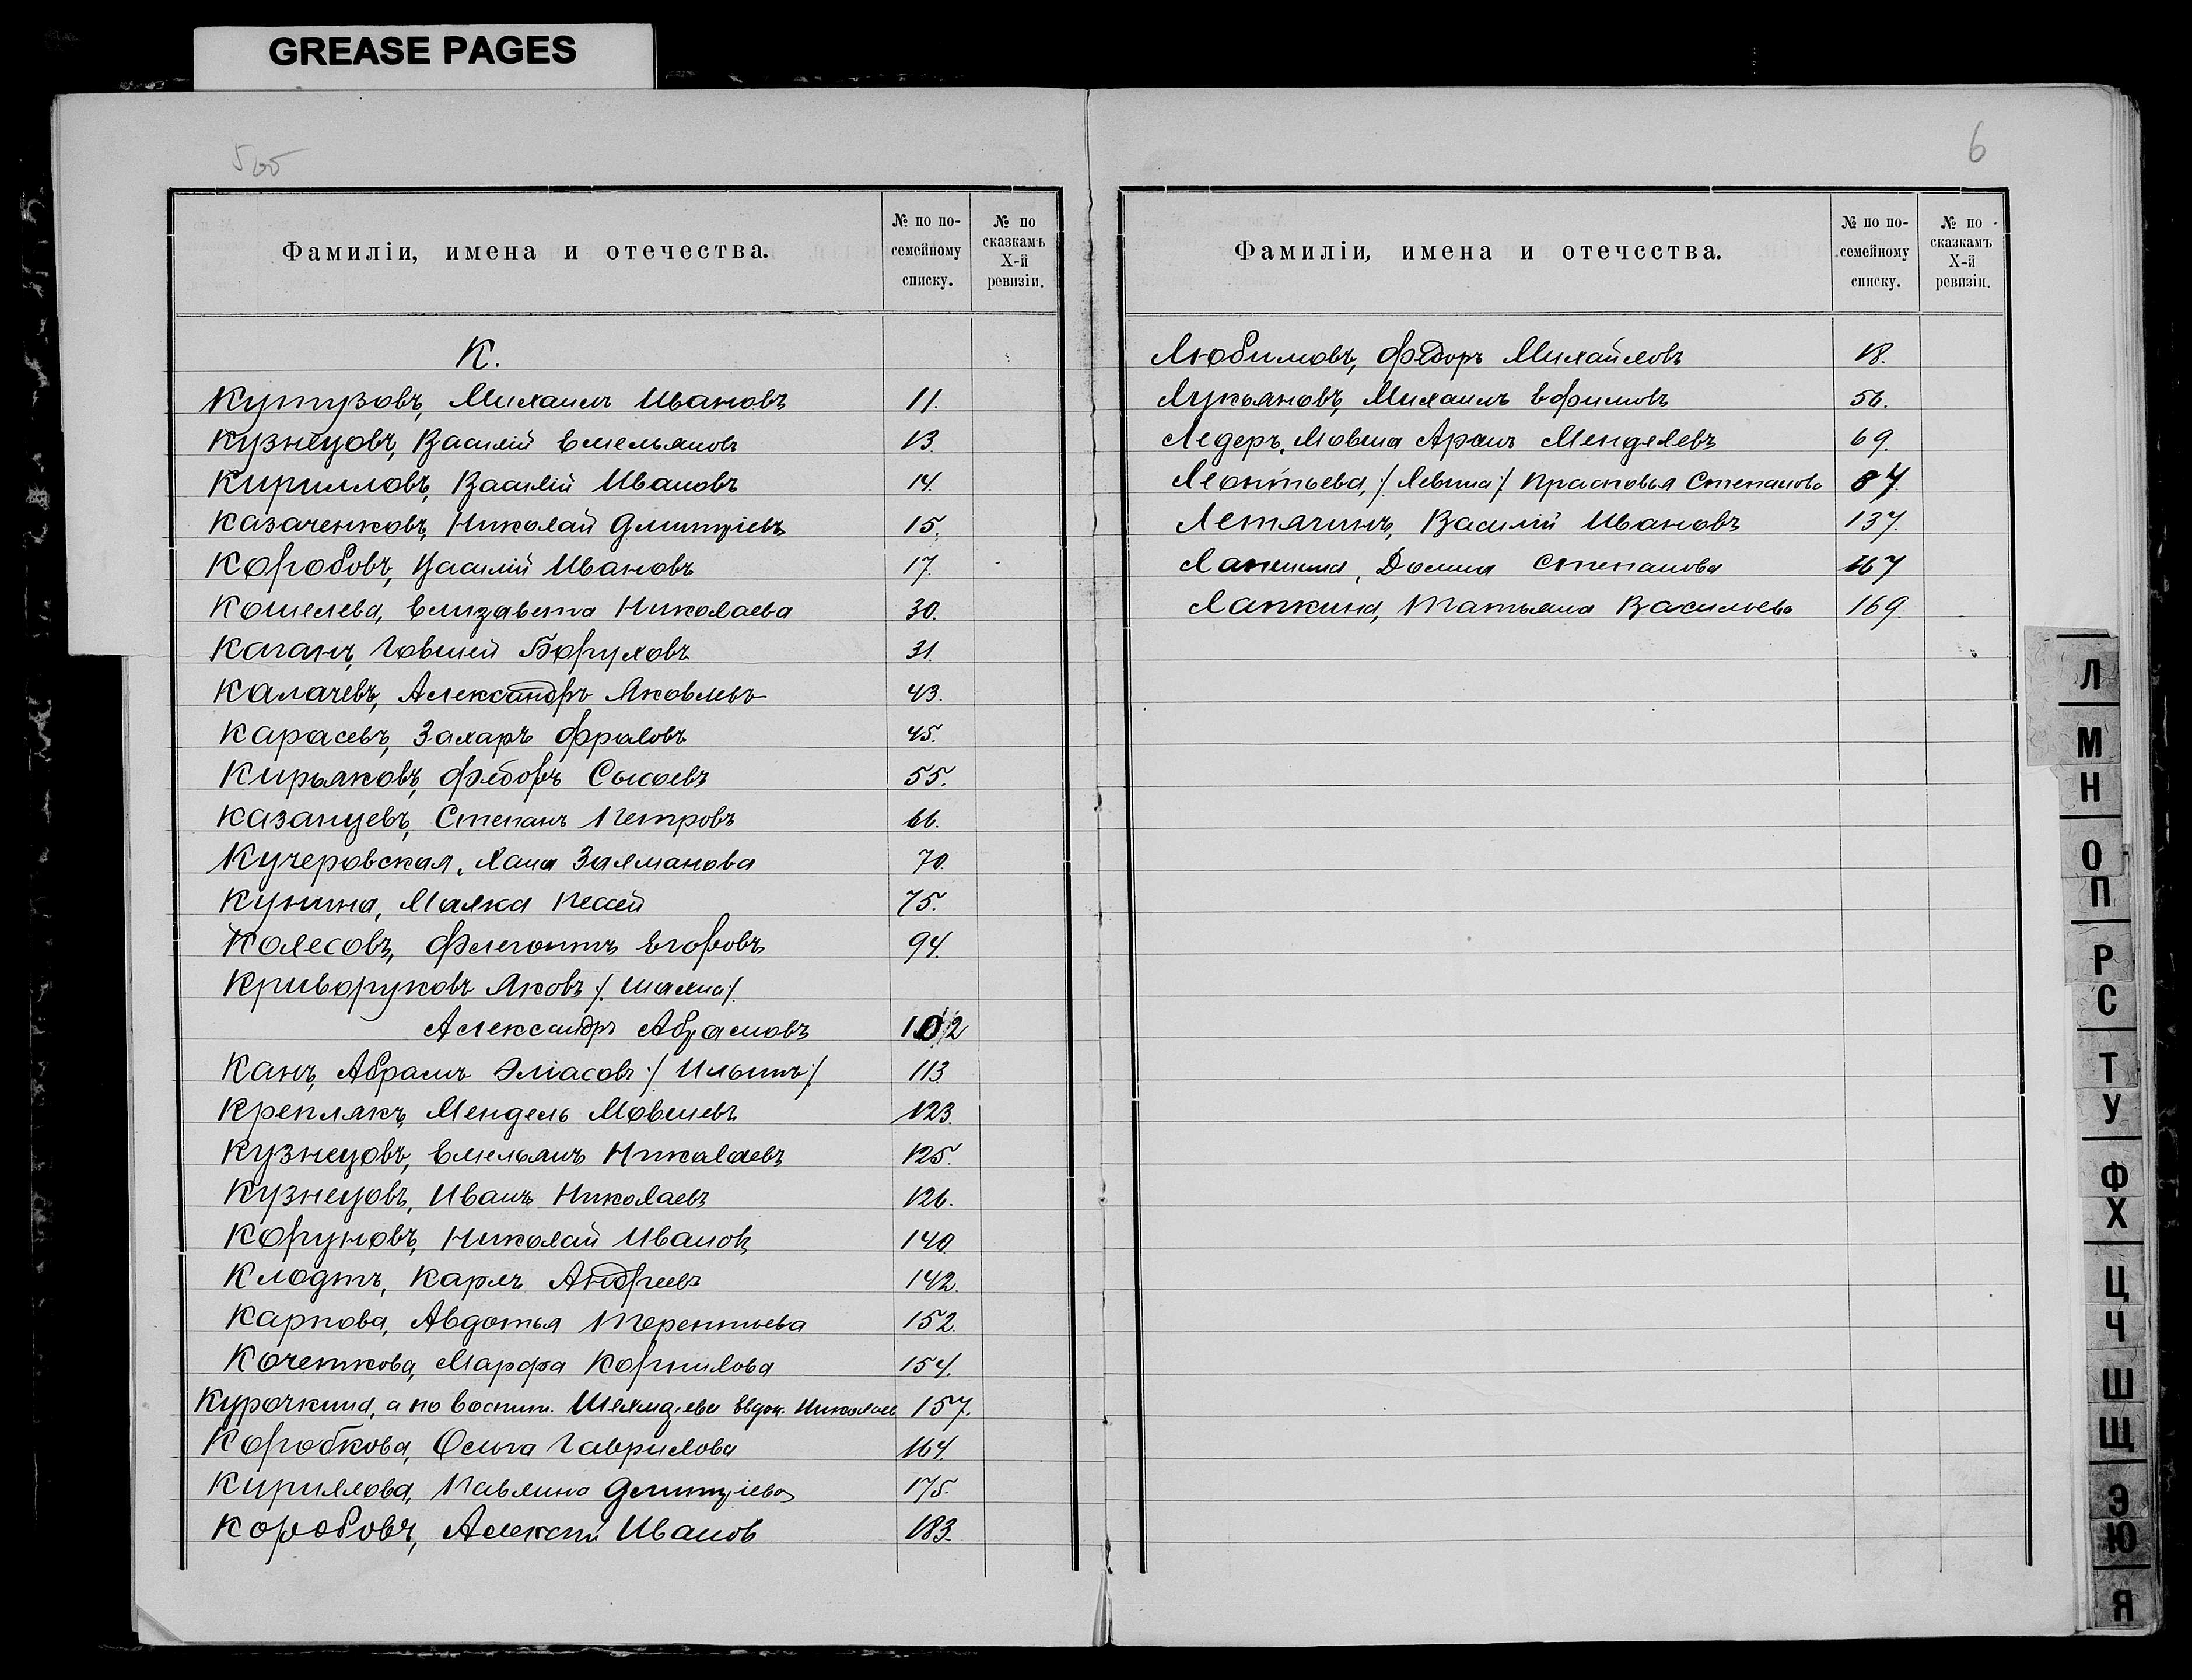 GREASE PAGES
6
Фамиліи, имена и отечества.
№ по по-
семейному
списку.
№ по
сказкамъ
X-й
ревизіи.
К.
Кутузовъ, Михаилъ Ивановъ 11.
Кузнецовъ, Василій Емельяновъ 13.
Кирилловъ, Василій Ивановъ 14.
Казаченковъ, Николай Дмитріевъ 15.
Коробовъ, Василій Ивановъ 17.
Кошелева, Елизавета Николаева 30.
Каганъ, Говшей Боруховъ 31.
Калачевъ, Александръ Яковлевъ 43.
Карасевъ, Захаръ Фроловъ 45.
Кирьяковъ, Федоръ Сысоевъ 55.
Казанцевъ, Степанъ Петровъ 66.
Кучеровская, Хана Залманова 70.
Кунина, Малка Песей 75.
Колесовъ, Флегонтъ Егоровъ 94.
Криворуковъ Яковъ /: Шахна :/
Александръ Абрамовъ 102
Канъ, Абрамъ Эліасовъ :/ Ильинъ :/ 113
Креплякъ, Мендель Мовшевъ 123.
Кузнецовъ, Емельянъ Николаевъ 125.
Кузнецовъ, Иванъ Николаевъ 126.
Коруновъ, Николай Ивановъ 140.
Клодтъ, Карлъ Андреевъ 142.
Карпова, Авдотья Терентьева 152.
Кочеткова, Марфа Корнилова 154.
Курочкина, а по воспит. Николаев 157.
Коробкова, Ольга Гаврилова 164.
Кириллова, Павлина Дмитріева 175.
Коробовъ, Алексѣй Иванов 183.
Фамиліи, имена и отечества.
№ по по-
семейному
списку.
№ по
сказкамъ
X-й
ревизіи.
Любимовъ, Федоръ Михайловъ 18.
Лукьяновъ, Михаилъ Ефимовъ 56.
Ледеръ, Мовша Аронъ Менделевъ 69.
Леонтьева, /: Левина :/ Прасковья Степанова 87.
Летягинъ, Василій Ивановъ 137.
Лапшина, Домна Степанова 167
Лапкина, Татьяна Васильева 169.
Л
М
Н
О
П
Р
С
Т
У
Ф
Х
Ц
Ч
Ш
Щ
Э
Ю
Я